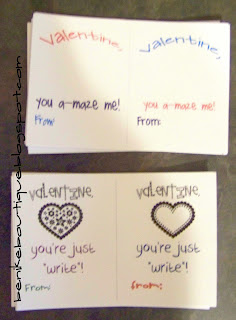 valentine,
you a-maze me!
From:
valentine,
you a-maze me!
From:
valentine,
you're just
"write"!
From:
valentine,
you're just
"write"!
from:
benikeboutique.blogspot.com